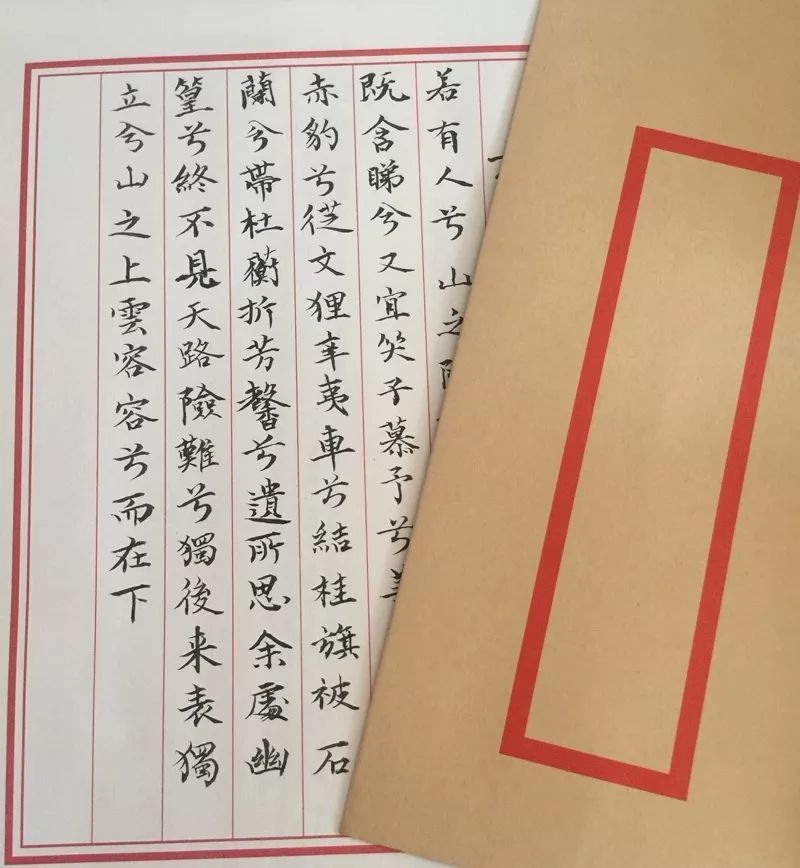 若有人兮山之
既含睇兮又宜笑子慕予兮
赤豹兮從文狸辛夷車兮結桂旗被石
蘭兮帶杜衡折芳馨兮遺所思余處幽
篁兮終不見天路險難兮獨後来表獨
立兮山之上雲容容兮而在下